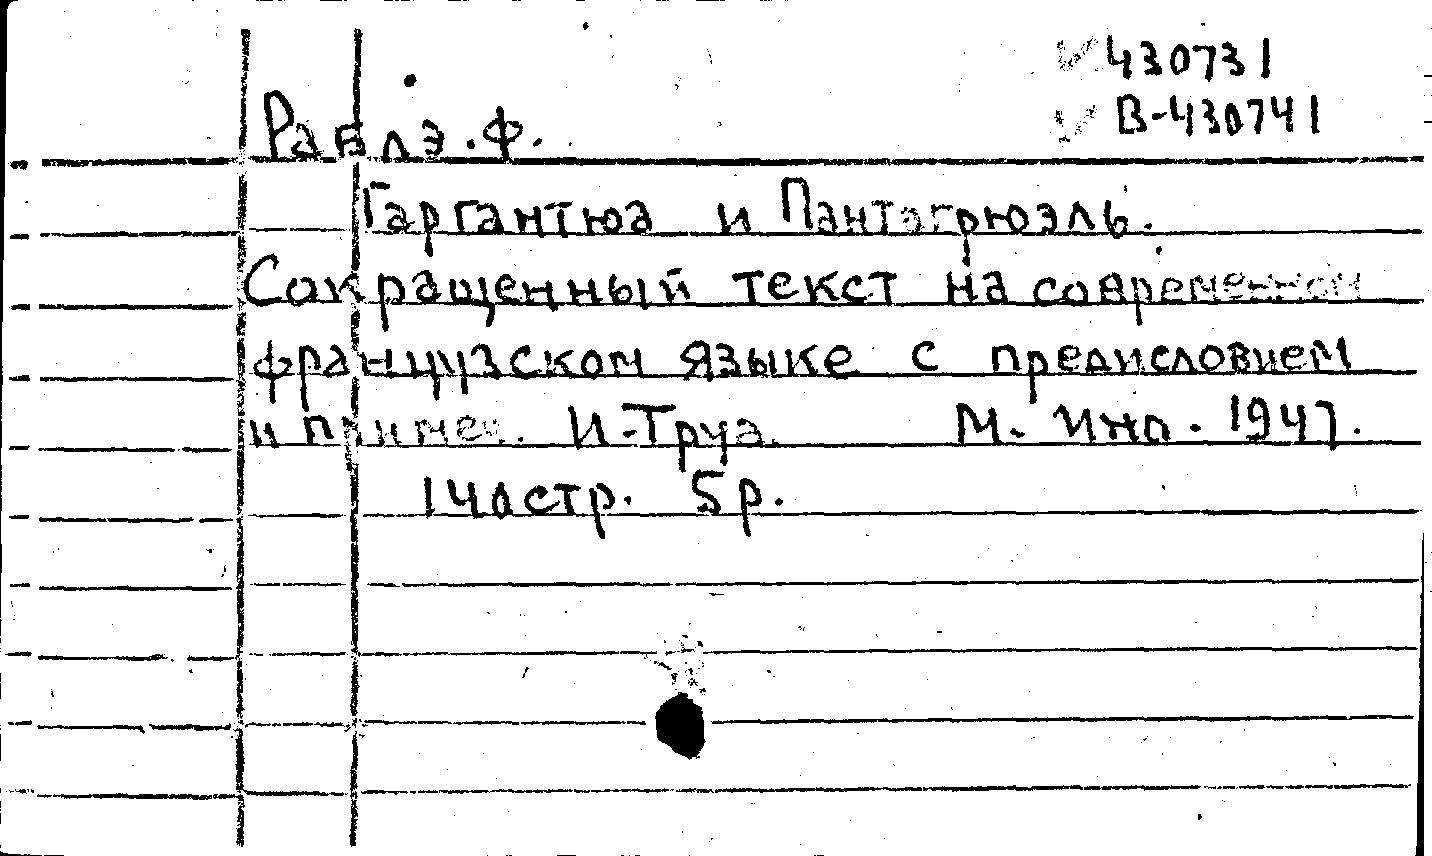 430731
В-430741
Раблэ.Ф.
Гаргантюа и Пантагрюэль.
Сокращенный текст на современном
французском языке с предисловием
и примеч. И-Труа. М. Инп. 1947.
140стр. 5р.